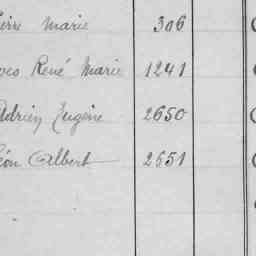 Pierre Marie 306
Yves René Marie 1241
Adrien Eugène 2650
Léon Albert 2651